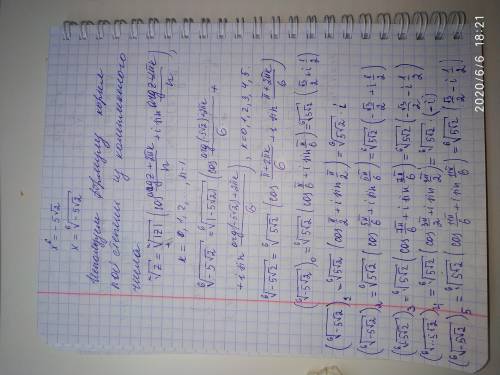 x⁶ = -5√2
x = ⁶√(-5√2)
Используем формулу корня
n-ой степени из комплексного
числа
ⁿ√z = ⁿ√|z| (cos (arg z + 2πk)/n + i sin (arg z + 2πk)/n),
k = 0, 1, 2, ..., n-1
⁶√(-5√2) = ⁶√|-5√2| (cos (arg(-5√2) + 2πk)/6 +
+ i sin (arg(-5√2) + 2πk)/6), k = 0, 1, 2, 3, 4, 5
⁶√(-5√2) = ⁶√(5√2) (cos (π + 2πk)/6 + i sin (π + 2πk)/6)
(⁶√(-5√2))₀ = ⁶√(5√2) (cos π/6 + i sin π/6) = ⁶√(5√2) (√3/2 + i 1/2)
(⁶√(-5√2))₁ = ⁶√(5√2) (cos π/2 + i sin π/2) = ⁶√(5√2) i
(⁶√(-5√2))₂ = ⁶√(5√2) (cos 5π/6 + i sin 5π/6) = ⁶√(5√2) (-√3/2 + i 1/2)
(⁶√(-5√2))₃ = ⁶√(5√2) (cos 7π/6 + i sin 7π/6) = ⁶√(5√2) (-√3/2 - i 1/2)
(⁶√(-5√2))₄ = ⁶√(5√2) (cos 3π/2 + i sin 3π/2) = ⁶√(5√2) (-i)
(⁶√(-5√2))₅ = ⁶√(5√2) (cos 11π/6 + i sin 11π/6) = ⁶√(5√2) (√3/2 - i 1/2)
2020/6/6 18:21